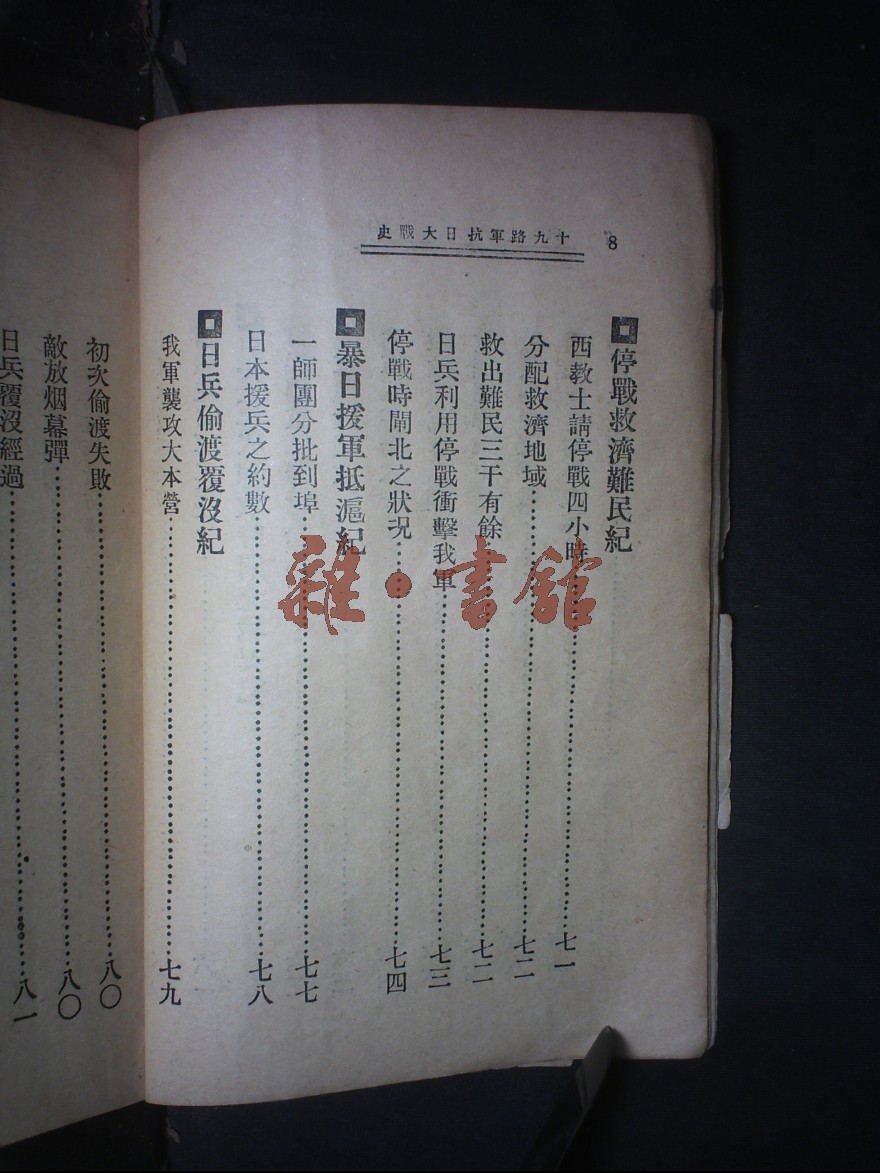 8
十九路軍抗日大戰史
停戰救濟難民紀
西教士請停戰四小時……七一
分配救濟地域……七二
救出難民三千有餘……七二
日兵利用停戰衝擊我軍……七三
停戰時閘北之狀況……七四
暴日援軍抵滬紀
一師團分批到埠……七七
日本援兵之約數……七八
日兵偷渡覆沒紀
我軍襲攻大本營……七九
初次偷渡失敗……八〇
敵放烟幕彈……八〇
日兵覆沒經過……八一
雜·書館